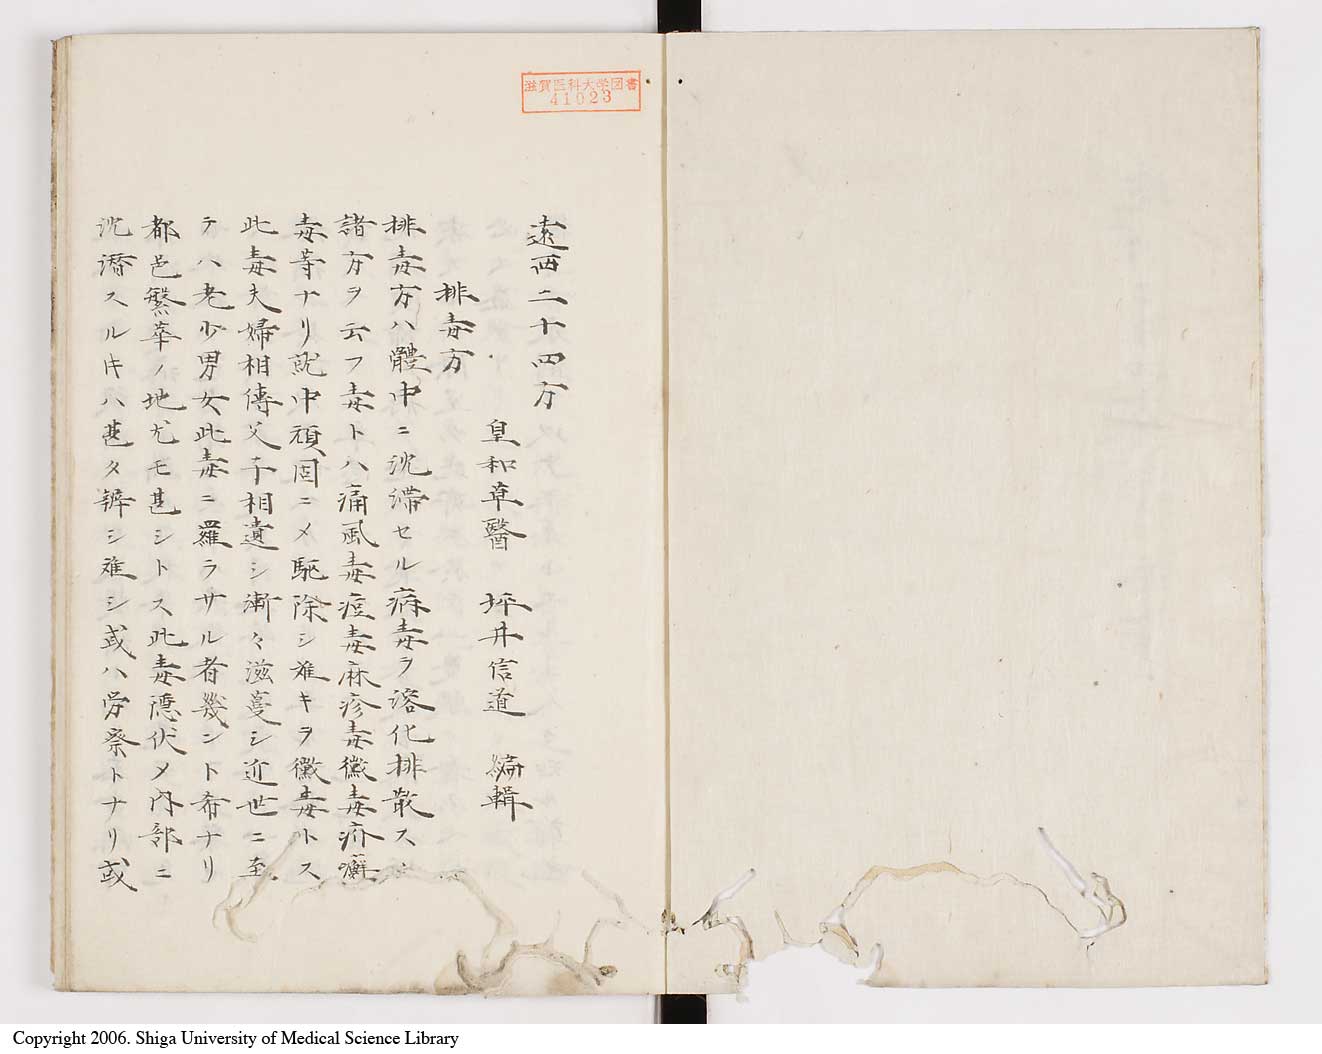 滋賀医科大学図書
41023
遠西二十四方
皇和草醫 坪井信道 編輯
排毒方
排毒方ハ體中ニ沈滞セル病毒ヲ溶化排散スル
諸方ヲ云フ毒トハ痛風毒痘毒麻疹毒黴毒疥癬
毒等ナリ就中頑固ニメ駆除シ難キヲ黴毒トス
此毒夫婦相傳父子相遺シ漸々滋蔓シ近世ニ至
テハ老少男女此毒ニ羅ラサル者幾ント希ナリ
都邑繁華ノ地尤モ甚シトス此毒隠伏メ内部ニ
沈滯スルキハ甚タ辨シ難シ或ハ労瘵トナリ或
Copyright 2006. Shiga University of Medical Science Library